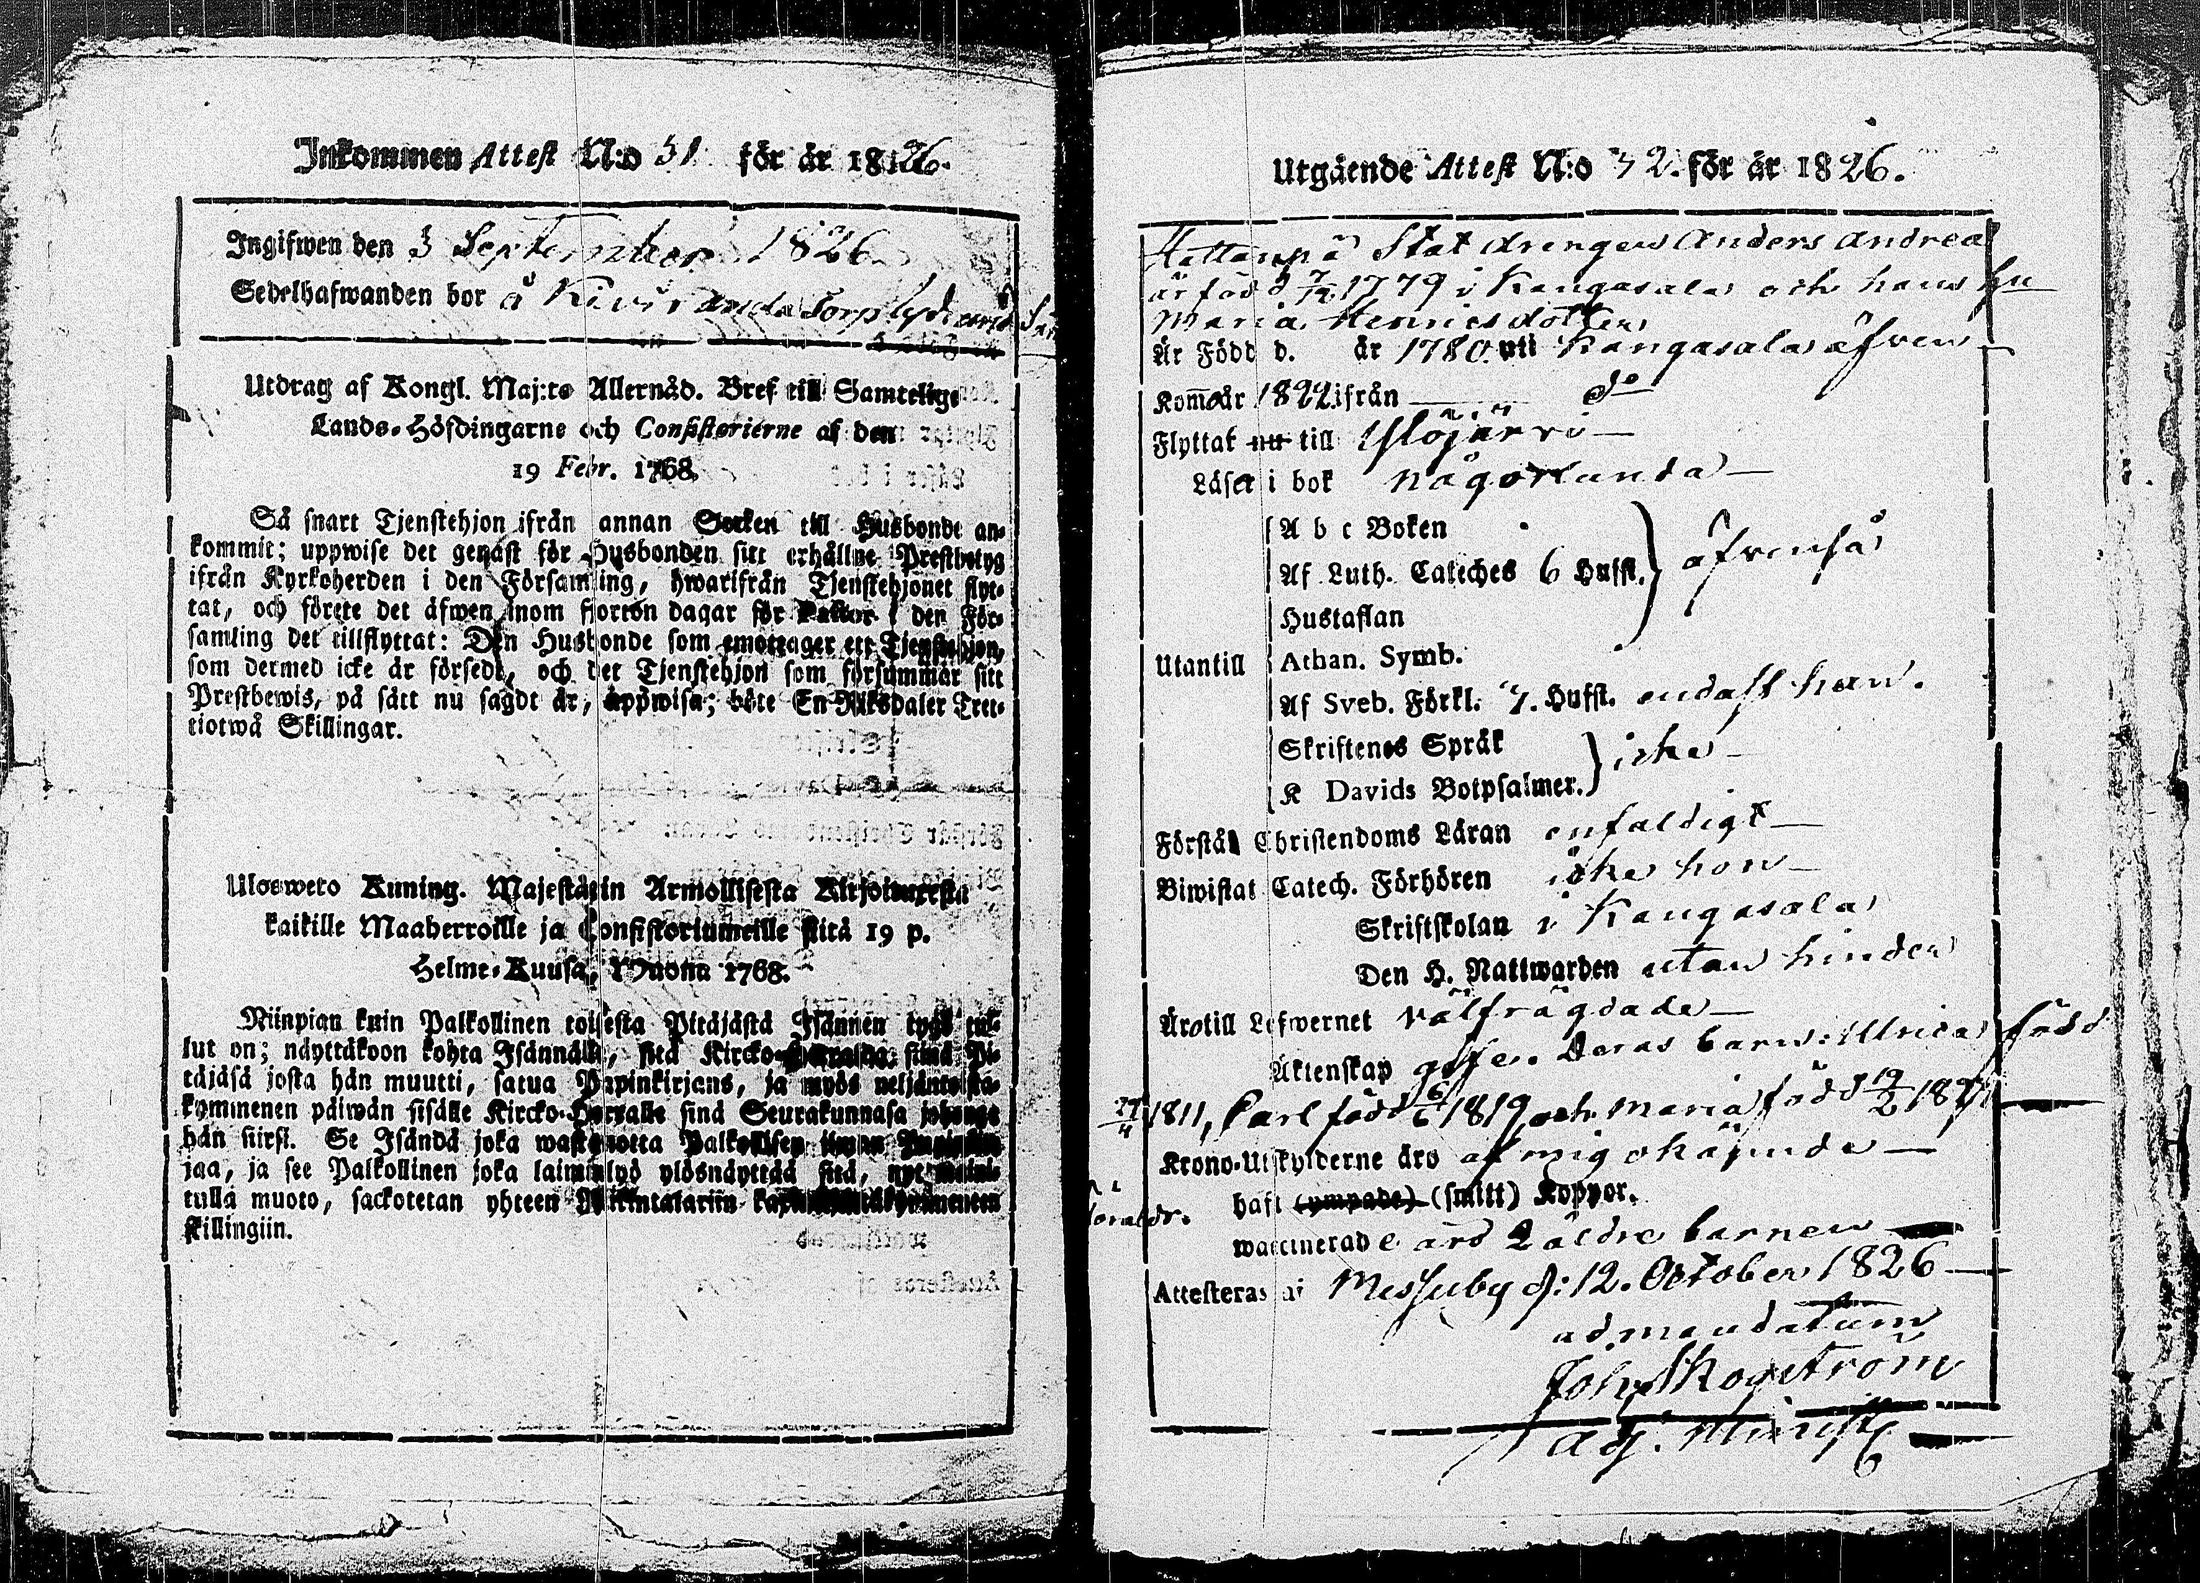 Inkommen Attest N:o 31 för år 1826.
Ingifwen den 3 September 1826.
Sedelhafwanden bor å Kiviranda Torp
Utdrag af Kongl. Maj:ts Allernåd. Bref till Samtelige
Lands-Höfdingarne och Consistorierne af den
19 Febr. 1768.
Så snart Tjenstehjon ifrån annan Socken till Husbonde an-
kommit; uppwise det genast för Husbonden sitt erhållne Prestbetyg
ifrån Kyrkoherden i den Församling, hwarifrån Tjenstehjonet flyt-
tat, och förete det äfwen inom fjorton dagar för Pastor i den För-
samling det tillflyttat: Den Husbonde som emottager ett Tjenstehjon,
som dermed icke är försedt, och det Tjenstehjon som försummar sitt
Prestbewis, på sätt nu sagdt är, uppwisa; böte En Riksdaler Tret-
tiotwå Skillingar.
Ulosweto Kuning. Majestätin Armollisesta Kirjoituxesta
kaikille Maaherroille ja Consistoriumeille siitä 19 p.
Helme-Kuusa, Wuonna 1768.
Niinpian kuin Palkollinen toisesta Pitäjästä Isännen tygö tul-
lut on; näyttäkoon kohta Isännälle, sitä Kircko-Herralda siinä Pi-
täjäsä josta hän muutti, satua Papinkirjans, ja myös neljäntoista-
kymmenen päiwän sisälle Kircko-Herralle siinä Seurakunnasa johonga
hän siirsi. Se Isändä joka wastanotta Palkollisen ilman Papinkir-
jaa, ja see Palkollinen joka laiminlyö ylösnäyttää sitä, nyt maini-
tulla muoto, sackotetan yhteen Rikintalariin
skillingiin.
Utgående Attest N:o 32. för år 1826.
Hattanpä Stat drengen Anders Andrea
är född d 7/12 1779 i Kangasala och hans hu
Maria Henricsdotter
Är Född d. år 1780 uti Kangasala äfven
Kom år 1822 ifrån do
Flyttat nu till Ylöjärvi
Läser i bok någorlunda
A b c Boken
Af Luth. Cateches 6 Hufst. äfvenså
Hustaflan
Utantill Athan. Symb.
Af Sveb. Förkl. 7. Hufst. endast han.
Skriftenes Språk
icke
K Davids Botpsalmer.
Förstår Christendoms Läran enfaldigt
Biwistat Catech. Förhören icke hon
Skriftskolan i Kangasala
Den H. Nattwarden utan hinder
Äro till Lefwernet välfrägdade
Äktenskap gifte. Deras barn: Ulrica född
27/11 1811, Carl född 6/6 1819 och Maria född 19/2 182
Krono-Utskylderne äro af mig okände
haft (ympade) (smitt) Koppor.
waccinerade äro 2 äldre barnen
Attesteras af Messuby d: 12. October 1826
ad mandatum
Joh. Skogström
Adj. Minist